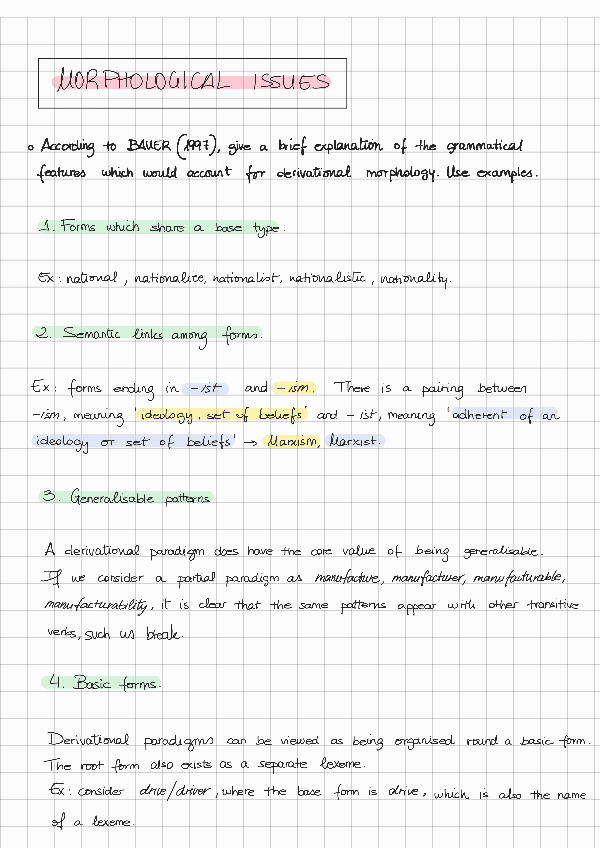 MORPHOLOGICAL ISSUES
o According to BAUER (1997), give a brief explanation of the grammatical
features which would account for derivational morphology. Use examples.
1. Forms which share a base type.
Ex: national, nationalice, nationalist, nationalistic, nationality.
2. Semantic links among forms.
Ex: forms ending in -ist and -ism. There is a pairing between
-ism, meaning 'ideology, set of beliefs' and -ist, meaning 'adherent of an
ideology or set of beliefs' → Marxism, Marxist.
3. Generalisable patterns
A derivational paradigm does have the core value of being generalisable.
If we consider a partial paradigm as manufacture, manufacturer, manufacturable,
manufacturability, it is clear that the same patterns appear with other transitive
verbs, such us break.
4. Basic forms.
Derivational paradigms can be viewed as being organised round a basic form.
The root form also exists as a separate lexeme.
Ex: consider drive/driver, where the base form is drive, which is also the name
of a lexeme.